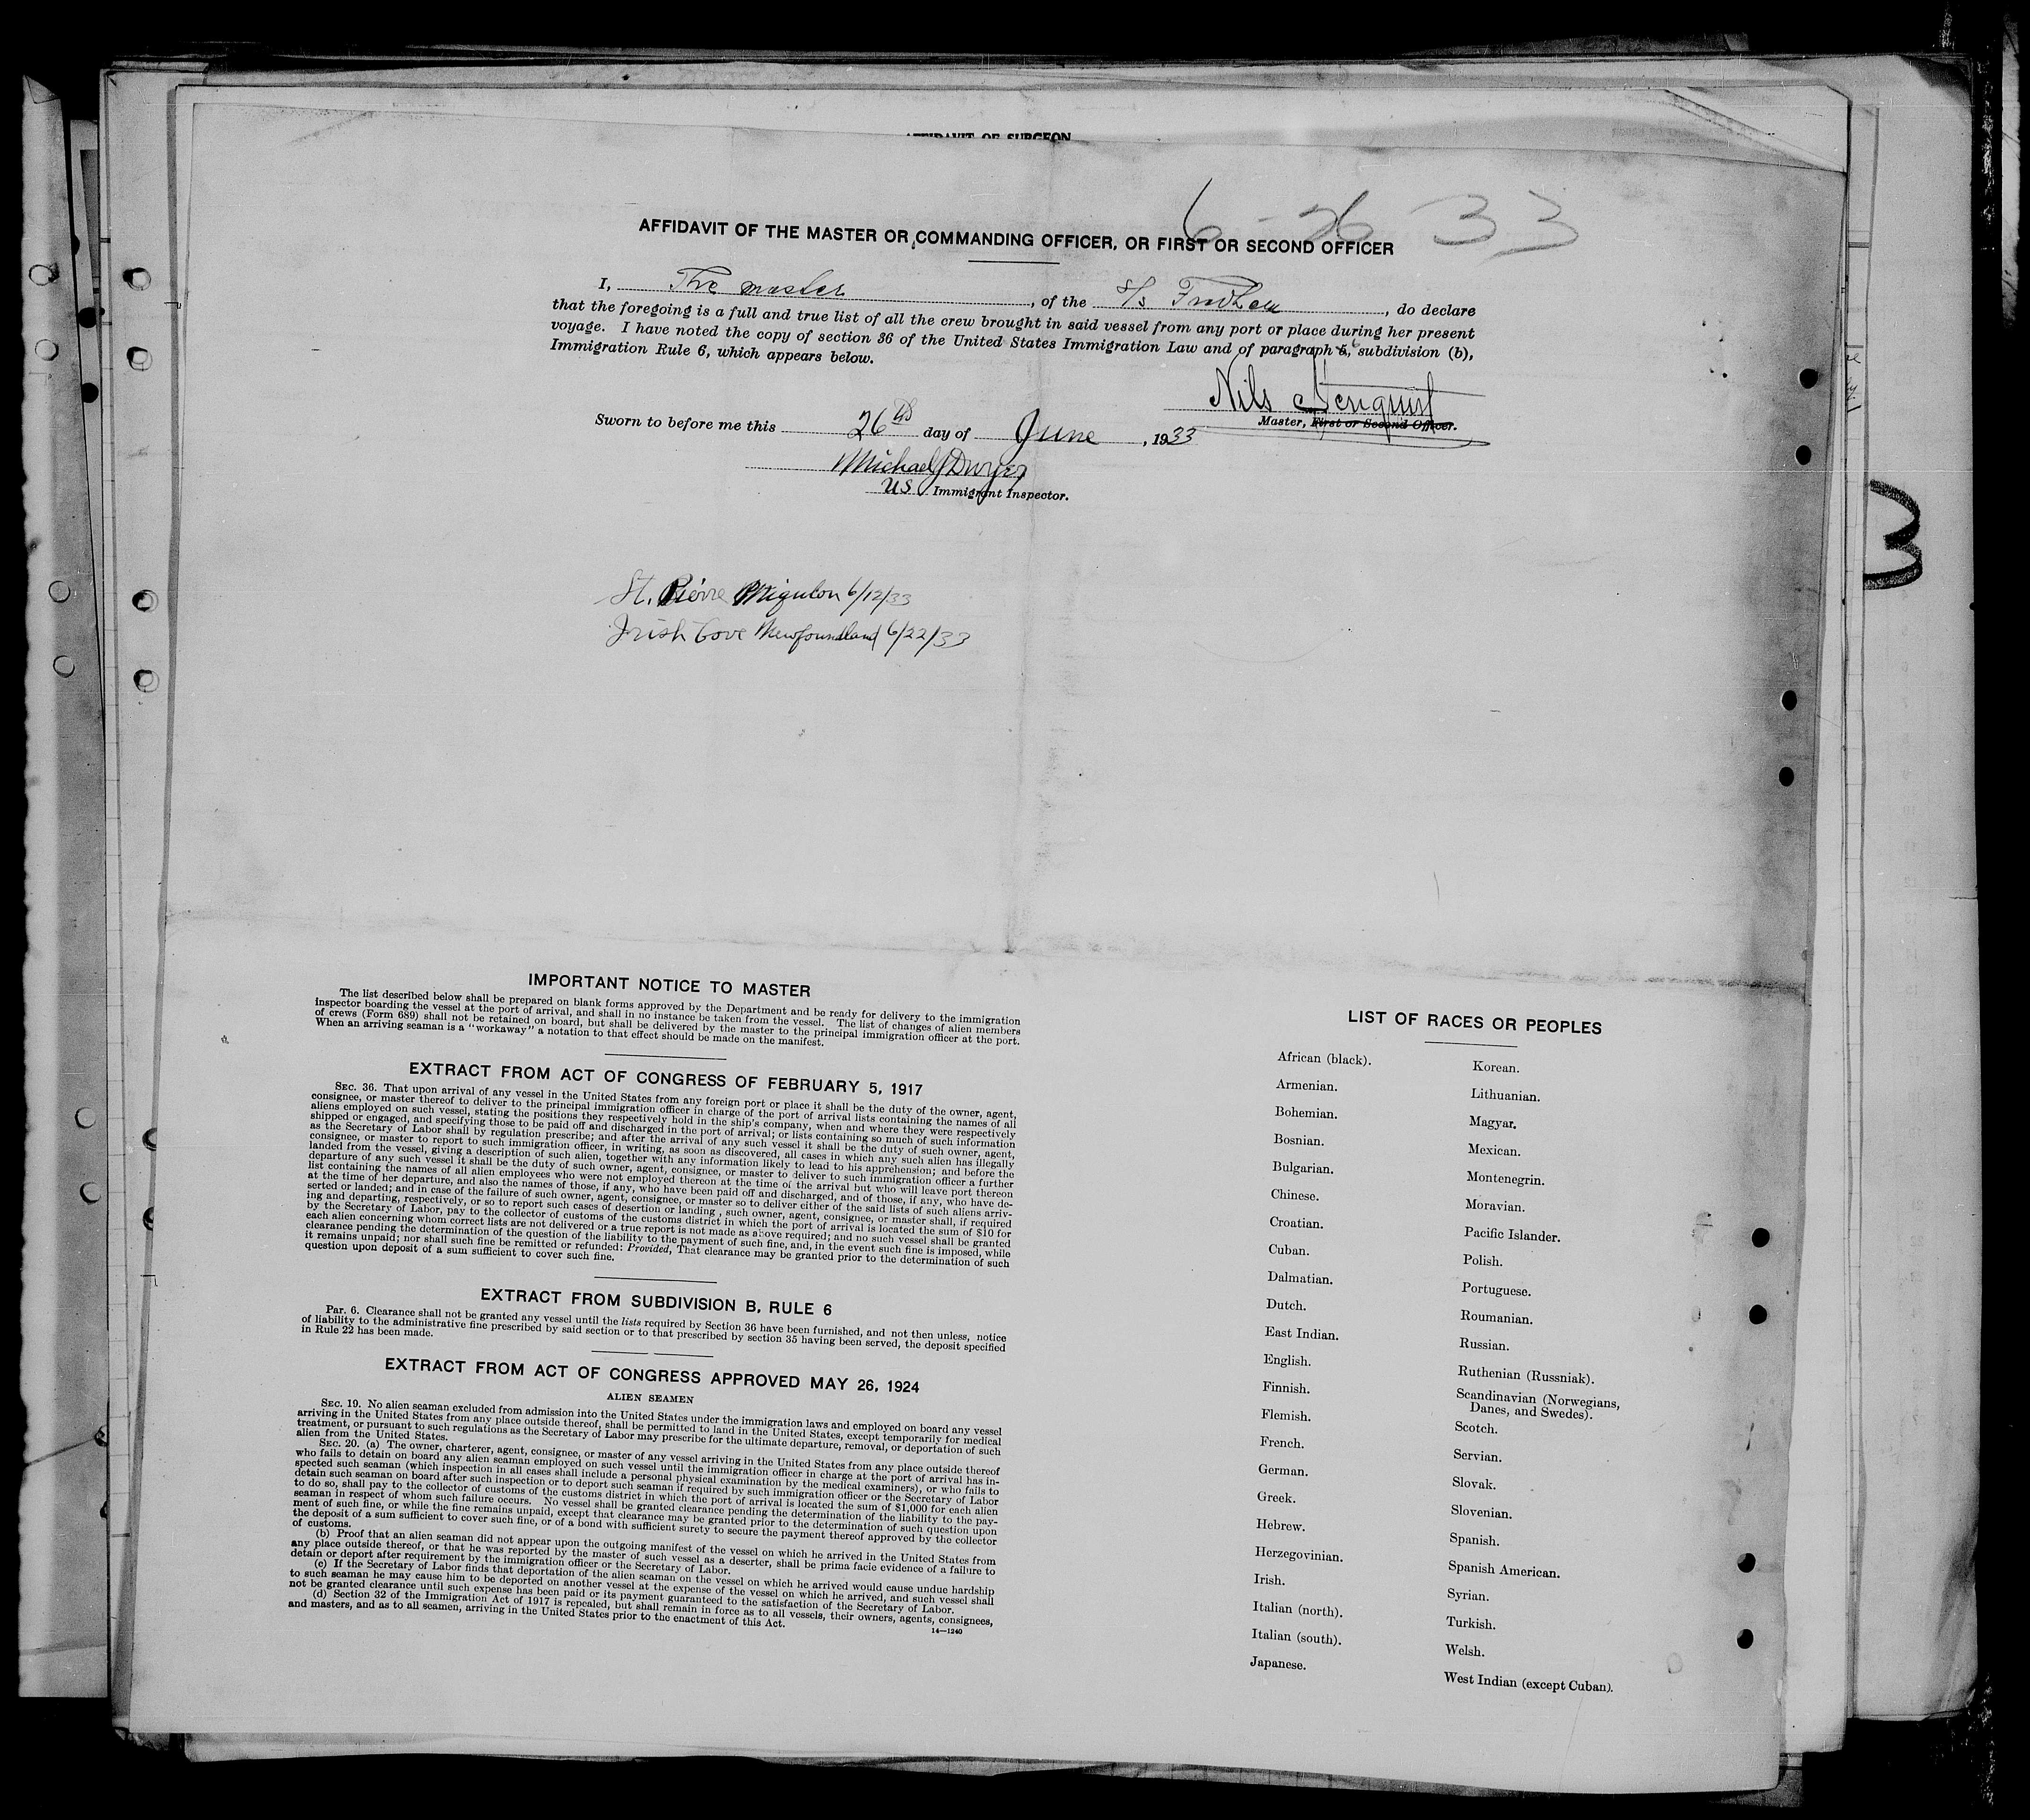 AFFIDAVIT OF SURGEON
6-26 33
AFFIDAVIT OF THE MASTER OR COMMANDING OFFICER, OR FIRST OR SECOND OFFICER
I, The master, of the S/s, do declare
that the foregoing is a full and true list of all the crew brought in said vessel from any port or place during her present
voyage. I have noted the copy of section 36 of the United States Immigration Law and of paragraph 5, 6 subdivision (b),
Immigration Rule 6, which appears below.
Nils
Master, First or Second Officer.
Sworn to before me this 26th day of June, 1933
Michael J Dwyer
US Immigrant Inspector.
St. Pierre Miquelon 6/12/33
Irish Cove Newfoundland 6/22/33
3
IMPORTANT NOTICE TO MASTER
The list described below shall be prepared on blank forms approved by the Department and be ready for delivery to the immigration
inspector boarding the vessel at the port of arrival, and shall in no instance be taken from the vessel. The list of changes of alien members
of crews (Form 689) shall not be retained on board, but shall be delivered by the master to the principal immigration officer at the port.
When an arriving seaman is a "workaway" a notation to that effect should be made on the manifest.
EXTRACT FROM ACT OF CONGRESS OF FEBRUARY 5, 1917
SEC. 36. That upon arrival of any vessel in the United States from any foreign port or place it shall be the duty of the owner, agent,
consignee, or master thereof to deliver to the principal immigration officer in charge of the port of arrival lists containing the names of all
aliens employed on such vessel, stating the positions they respectively hold in the ship's company, when and where they were respectively
shipped or engaged, and specifying those to be paid off and discharged in the port of arrival; or lists containing so much of such information
as the Secretary of Labor shall by regulation prescribe; and after the arrival of any such vessel it shall be the duty of such owner, agent,
consignee, or master to report to such immigration officer, in writing, as soon as discovered, all cases in which any such alien has illegally
landed from the vessel, giving a description of such alien, together with any information likely to lead to his apprehension; and before the
departure of any such vessel it shall be the duty of such owner, agent, consignee, or master to deliver to such immigration officer a further
list containing the names of all alien employees who were not employed thereon at the time of the arrival but who will leave port thereon
at the time of her departure, and also the names of those, if any, who have been paid off and discharged, and of those, if any, who have de-
serted or landed; and in case of the failure of such owner, agent, consignee, or master so to deliver either of the said lists of such aliens arriv-
ing and departing, respectively, or so to report such cases of desertion or landing , such owner, agent, consignee, or master shall, if required
by the Secretary of Labor, pay to the collector of customs of the customs district in which the port of arrival is located the sum of $10 for
each alien concerning whom correct lists are not delivered or a true report is not made as above required; and no such vessel shall be granted
clearance pending the determination of the question of the liability to the payment of such fine, and, in the event such fine is imposed, while
it remains unpaid; nor shall such fine be remitted or refunded: Provided, That clearance may be granted prior to the determination of such
question upon deposit of a sum sufficient to cover such fine.
EXTRACT FROM SUBDIVISION B, RULE 6
Par. 6. Clearance shall not be granted any vessel until the lists required by Section 36 have been furnished, and not then unless, notice
of liability to the administrative fine prescribed by said section or to that prescribed by section 35 having been served, the deposit specified
in Rule 22 has been made.
EXTRACT FROM ACT OF CONGRESS APPROVED MAY 26, 1924
ALIEN SEAMEN
SEC. 19. No alien seaman excluded from admission into the United States under the immigration laws and employed on board any vessel
arriving in the United States from any place outside thereof, shall be permitted to land in the United States, except temporarily for medical
treatment, or pursuant to such regulations as the Secretary of Labor may prescribe for the ultimate departure, removal, or deportation of such
alien from the United States.
SEC. 20. (a) The owner, charterer, agent, consignee, or master of any vessel arriving in the United States from any place outside thereof
who fails to detain on board any alien seaman employed on such vessel until the immigration officer in charge at the port of arrival has in-
spected such seaman (which inspection in all cases shall include a personal physical examination by the medical examiners), or who fails to
detain such seaman on board after such inspection or to deport such seaman if required by such immigration officer or the Secretary of Labor
to do so, shall pay to the collector of customs of the customs district in which the port of arrival is located the sum of $1,000 for each alien
seaman in respect of whom such failure occurs. No vessel shall be granted clearance pending the determination of the liability to the pay-
ment of such fine, or while the fine remains unpaid, except that clearance may be granted prior to the determination of such question upon
the deposit of a sum sufficient to cover such fine, or of a bond with sufficient surety to secure the payment thereof approved by the collector
of customs.
(b) Proof that an alien seaman did not appear upon the outgoing manifest of the vessel on which he arrived in the United States from
any place outside thereof, or that he was reported by the master of such vessel as a deserter, shall be prima facie evidence of a failure to
detain or deport after requirement by the immigration officer or the Secretary of Labor.
(c) If the Secretary of Labor finds that deportation of the alien seaman on the vessel on which he arrived would cause undue hardship
to such seaman he may cause him to be deported on another vessel at the expense of the vessel on which he arrived, and such vessel shall
not be granted clearance until such expense has been paid or its payment guaranteed to the satisfaction of the Secretary of Labor.
(d) Section 32 of the Immigration Act of 1917 is repealed, but shall remain in force as to all vessels, their owners, agents, consignees,
and masters, and as to all seamen, arriving in the United States prior to the enactment of this Act.
14—1240
LIST OF RACES OR PEOPLES
African (black).
Armenian.
Bohemian.
Bosnian.
Bulgarian.
Chinese.
Croatian.
Cuban.
Dalmatian.
Dutch.
East Indian.
English.
Finnish.
Flemish.
French.
German.
Greek.
Hebrew.
Herzegovinian.
Irish.
Italian (north).
Italian (south).
Japanese.
Korean.
Lithuanian.
Magyar.
Mexican.
Montenegrin.
Moravian.
Pacific Islander.
Polish.
Portuguese.
Roumanian.
Russian.
Ruthenian (Russniak).
Scandinavian (Norwegians,
Danes, and Swedes).
Scotch.
Servian.
Slovak.
Slovenian.
Spanish.
Spanish American.
Syrian.
Turkish.
Welsh.
West Indian (except Cuban).